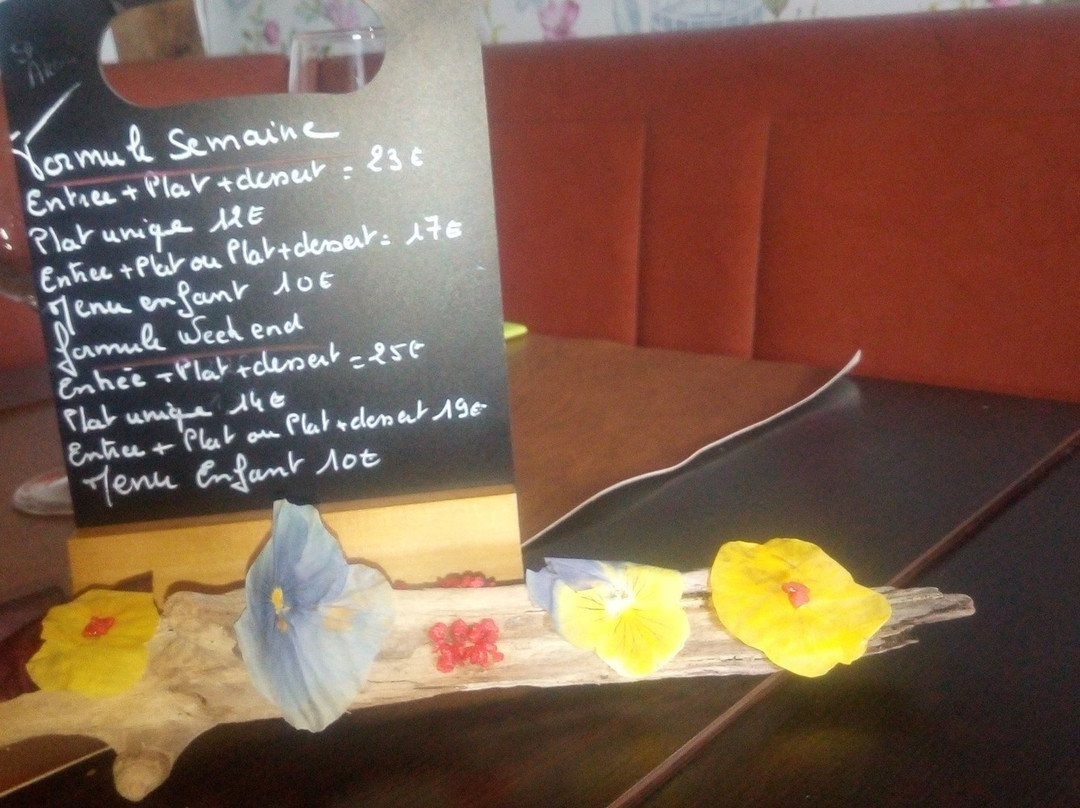 Formule Semaine
Entree + Plat + dessert = 23€
Plat unique 12€
Entree + Plat ou Plat + dessert = 17€
Menu enfant 10€
formule Week end
Entrée + Plat + dessert = 25€
Plat unique 14€
Entree + Plat ou Plat + dessert 19€
Menu Enfant 10€